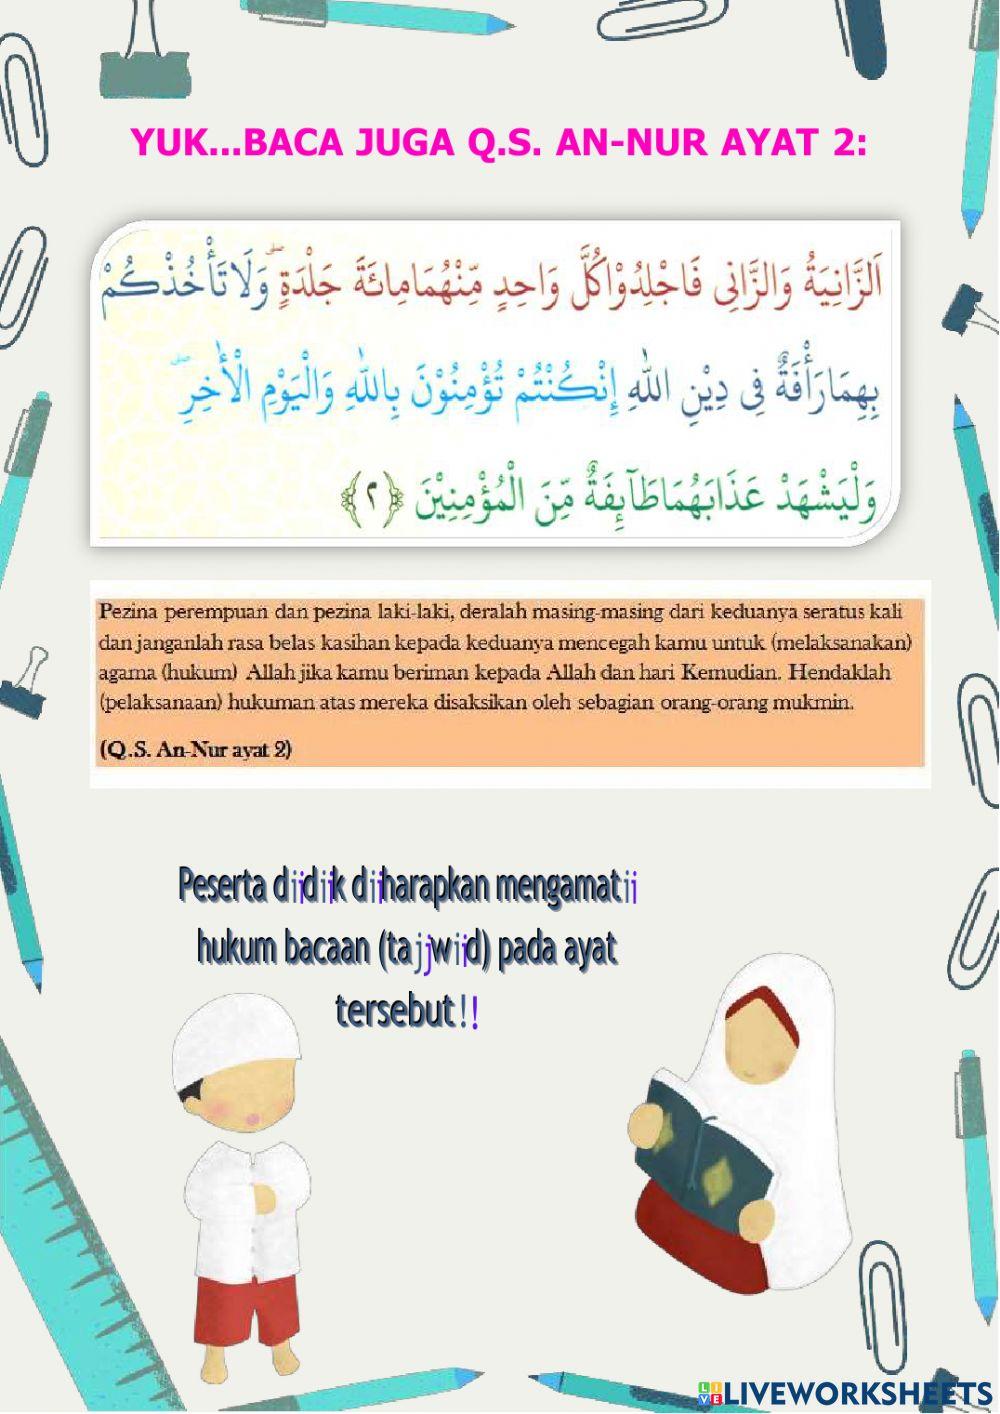 YUK...BACA JUGA Q.S. AN-NUR AYAT 2:
اَلزَّانِيَةُ وَالزَّانِى فَاجْلِدُوْا كُلَّ وَاحِدٍ مِّنْهُمَا مِائَةَ جَلْدَةٍ ۖ وَلَا تَأْخُذْكُمْ
بِهِمَا رَأْفَةٌ فِى دِيْنِ اللّٰهِ إِنْ كُنْتُمْ تُؤْمِنُوْنَ بِاللّٰهِ وَالْيَوْمِ الْاٰخِرِ ۖ
وَلْيَشْهَدْ عَذَابَهُمَا طَآئِفَةٌ مِّنَ الْمُؤْمِنِيْنَ ﴿٢﴾
Pezina perempuan dan pezina laki-laki, deralah masing-masing dari keduanya seratus kali
dan janganlah rasa belas kasihan kepada keduanya mencegah kamu untuk (melaksanakan)
agama (hukum) Allah jika kamu beriman kepada Allah dan hari Kemudian. Hendaklah
(pelaksanaan) hukuman atas mereka disaksikan oleh sebagian orang-orang mukmin.
(Q.S. An-Nur ayat 2)
Peserta didik diharapkan mengamati
hukum bacaan (tajwid) pada ayat
tersebut!!
LIVEWORKSHEETS